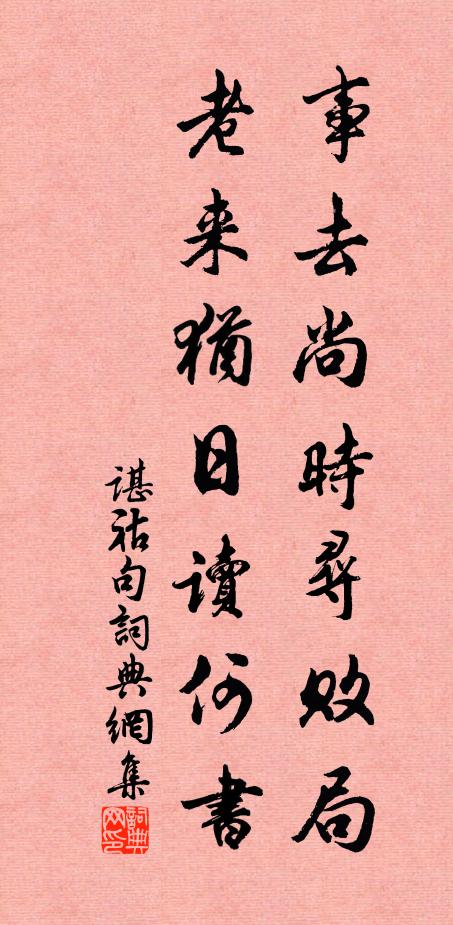 事去尚時尋敗局
老来猶日讀何書
谌祜句詞典網集
詞典网印